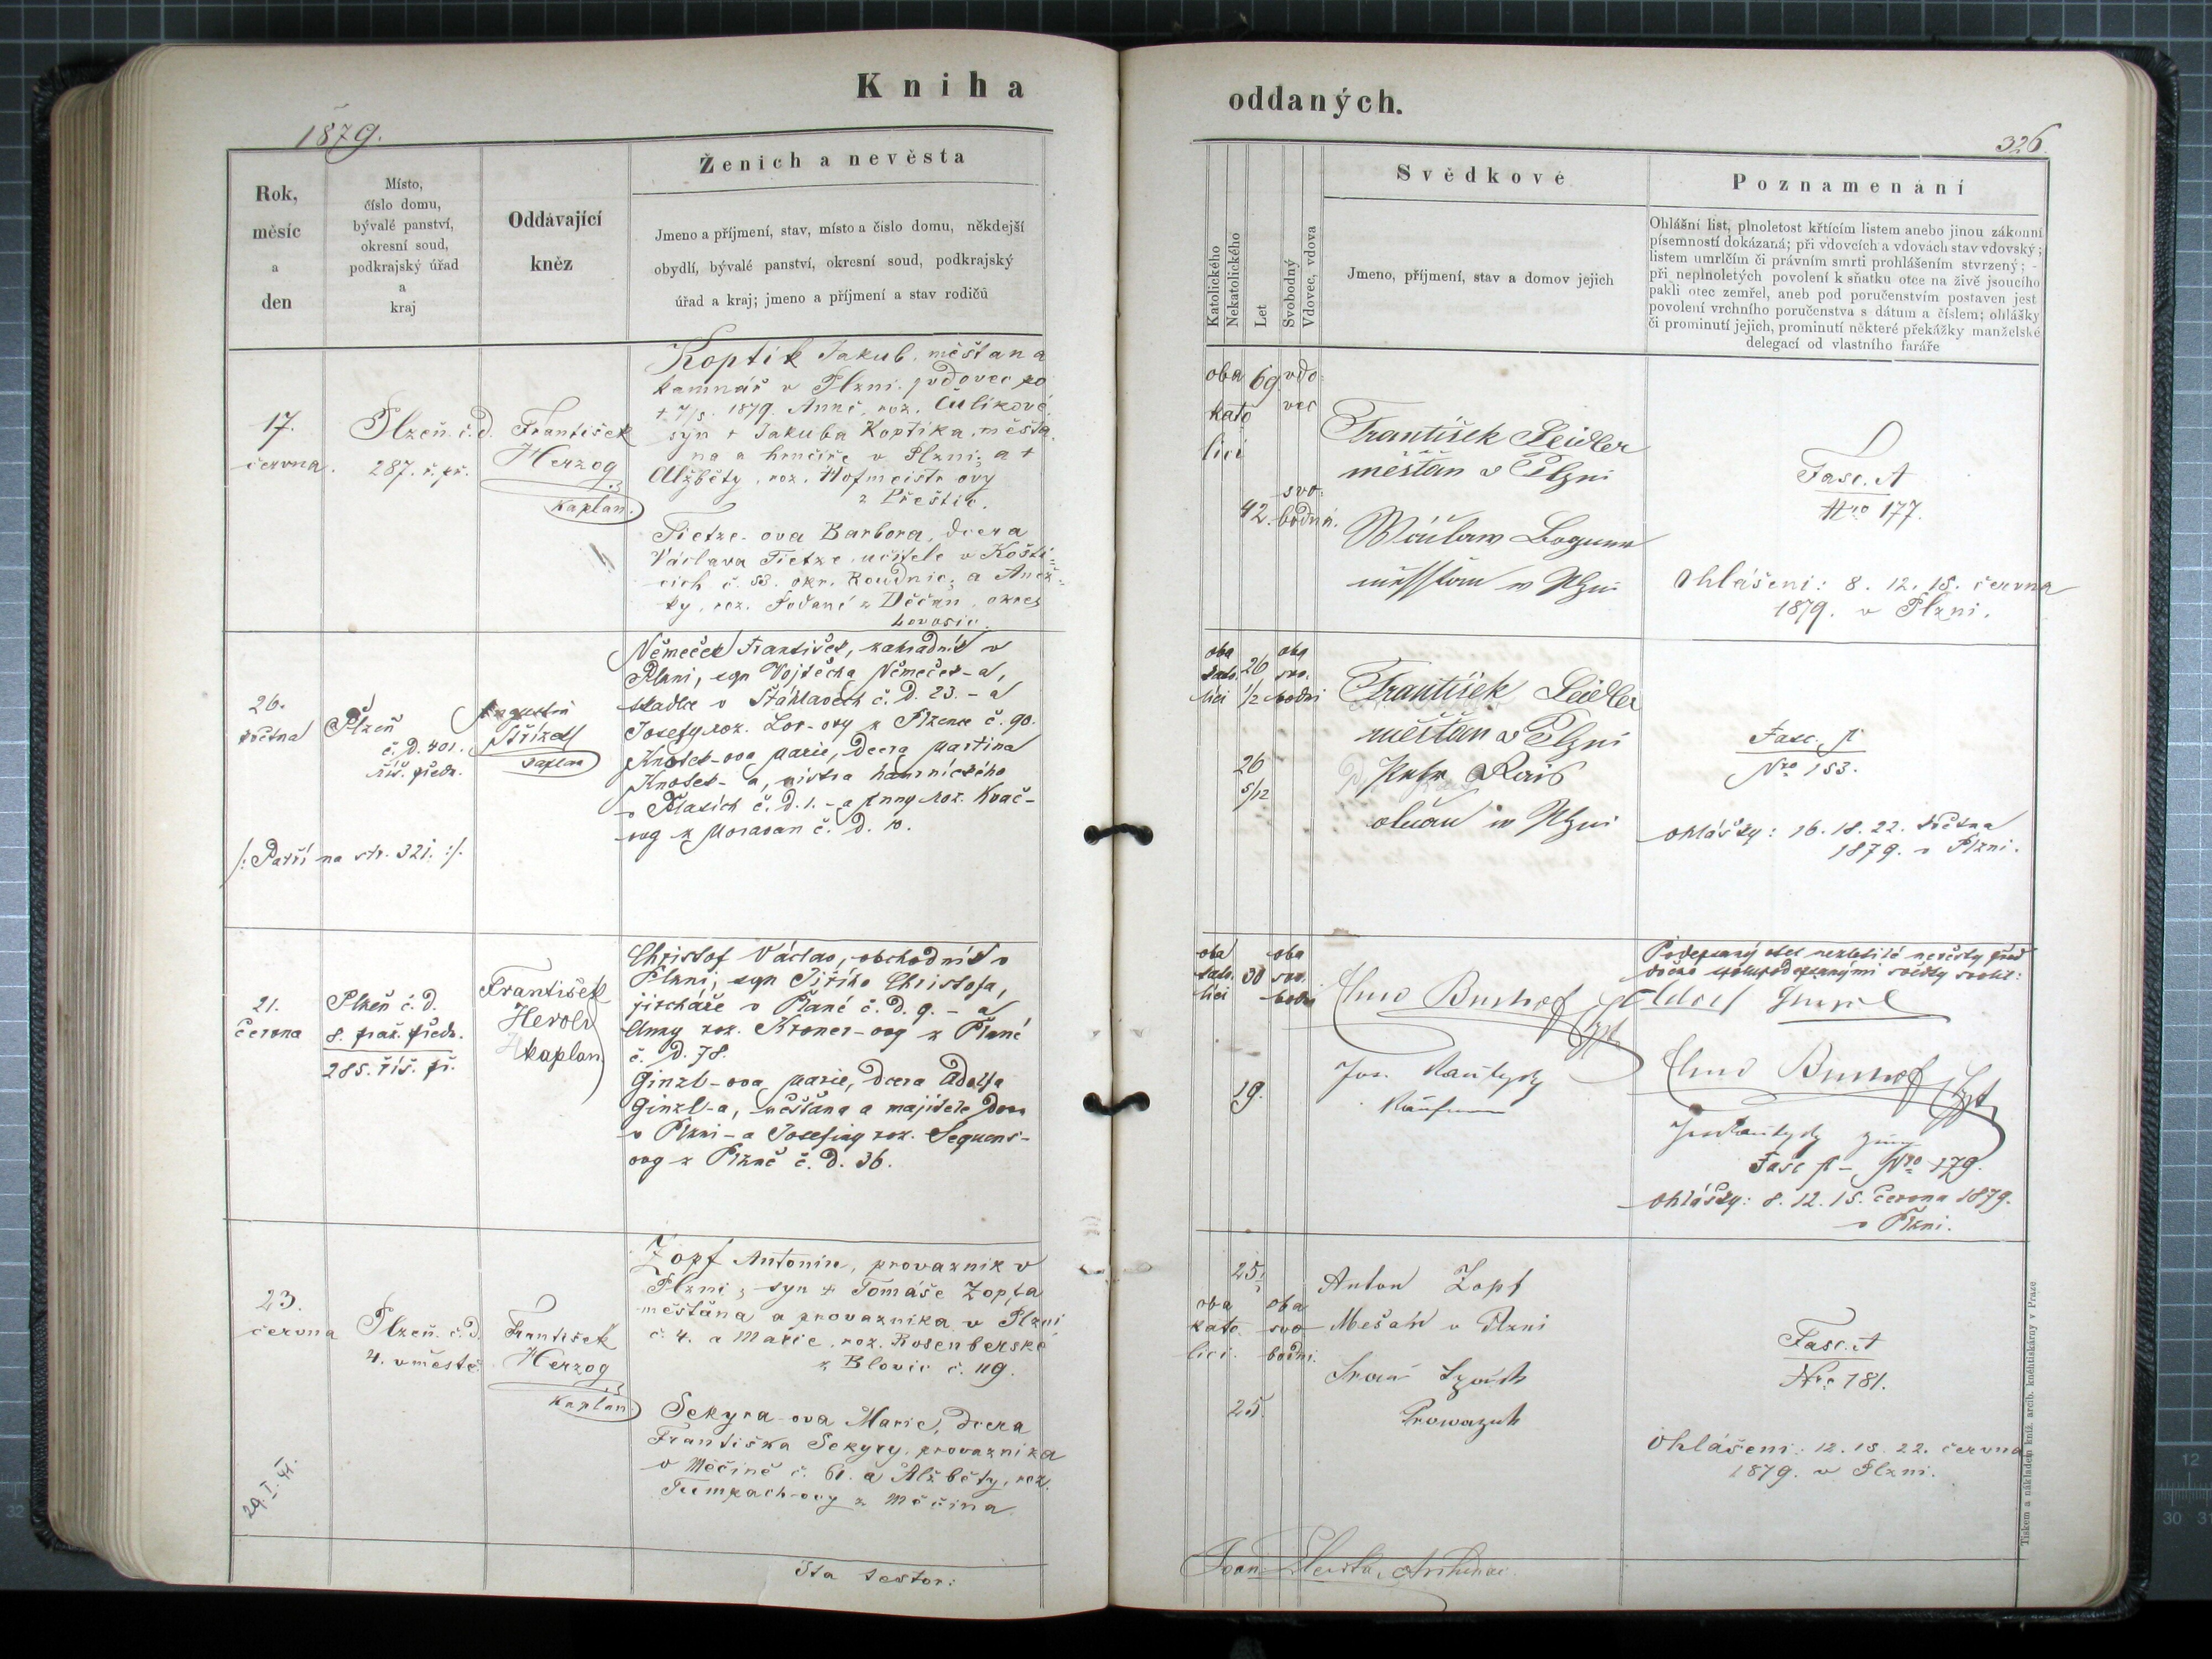 Kniha
oddaných.
1879.
326.
Rok,
měsíc
a
den
Místo,
číslo domu,
bývalé panství,
okresní soud,
podkrajský úřad
a
kraj
Oddávající
kněz
Ženich a nevěsta
Jmeno a příjmení, stav, místo a číslo domu, někdejší
obydlí, bývalé panství, okresní soud, podkrajský
úřad a kraj; jmeno a příjmení a stav rodičů
Katolického
Nekatolického
Let
Svobodný
Vdovec, vdova
Svědkové
Jmeno, příjmení, stav a domov jejich
Poznamenání
Ohlášní list, plnoletost křtícím listem anebo jinou zákonní
písemností dokázaná; při vdovcích a vdovách stav vdovský;
listem umrlčím či právním smrti prohlášením stvrzený; -
při neplnoletých povolení k sňatku otce na živě jsoucího
pakli otec zemřel, aneb pod poručenstvím postaven jest
povolení vrchního poručenstva s dátum a číslem; ohlášky
či prominutí jejich, prominutí některé překážky manželské
delegací od vlastního faráře
17.
června.
Plzeň. č. d.
287. ř. př.
František
Herzog
kaplan.
Koptik Jakub, měšťan a
kamnář v Plzni, vdovec po
† 7/5. 1879. Anně, roz. Čulíkové,
syn † Jakuba Koptika, měšťa-
na a hrnčíře v Plzni; a †
Alžběty, roz. Hofmeistr-ový
z Přeštic.
Tietze-ova Barbora, dcera
Václava Tietze, učitele v Košti-
cích č. 53. okr. Roudnic; a Anež-
ky, roz. z Děčan, okres
Lovosic.
oba
kato
lici
69
vdo-
vec
42.
svo-
bodná.
František Seidler
měšťan v Plzni
Fasc. A
Nro 177.
Ohlášeni: 8. 12. 15. června
1879. v Plzni.
26.
května
Plzeň
č. d. 401.
říš. předm.
Augustin
Střízek
kaplan
Němeček František, zahradník v
Plzni, syn Vojtěcha Němeček-a,
sládka v Šťáhlavech č. d. 23. - a
Josefy roz. Lov-ovy z Plzence č. 90.
Knotek-ova Marie, dcera Martina
Knotek-a, mistra hamrnického
v Plasích č. d. 1. - a Anny roz. Kvač-
ovy z Moravan č. d. 10.
/: Patří na str. 321. :/
oba
kato.
lici
26
1/2
oba
svo.
bodni
26
5/12
František Seidler
měšťan v Plzni
Petr Rais
Fasc. A
Nro 153.
Ohlášky: 16. 18. 22. května
1879. v Plzni.
21.
června
Plzeň č. d.
8. praž. předm.
285. říš. př.
František
Herold
kaplan
Christof Václav, obchodník v
Plzni, syn Jiřího Christofa,
jircháře v Plané č. d. 9. - a
Anny roz. Kroner-ovy z Plané
č. d. 78.
Ginzl-ova Marie, dcera Adolfa
Ginzl-a, měšťana a majitele domu
v Plzni - a Josefiny roz. Sequens-
ovy z Plzně č. d. 36.
oba
kato.
lici
30
oba
svo.
bodni
19.
Podepsaný otec nezletilé nevěsty před
dvěma spolupodepsanými svědky svolil:
Fasc A - Nro 179.
Ohlášky: 8. 12. 15. června 1879.
v Plzni.
23.
června
Plzeň. č. d.
4. v městě.
František
Herzog
kaplan
Zopf Antonin, provaznik v
Plzni; syn † Tomáše Zopfa
měšťana a provaznika v Plzni
č. 4. a Marie, roz. Rosenberské
z Blovic č. 119.
Sekyra-ova Marie, dcera
Františka Sekyry, provaznika
v Měčině č. 61. a Alžběty, roz.
Trumpach-ovy z Měčina
29. I. 41.
oba
kato
lici.
25.
oba
svo-
bodni.
25.
Anton Zopf
Mešťan v Plzni
Fasc. A
Nro 181.
Ohlášeni: 12. 15. 22. června
1879. v Plzni.
Ita testor:
Tiskem a nákladem kníž. arcib. kněhtiskárny v Praze